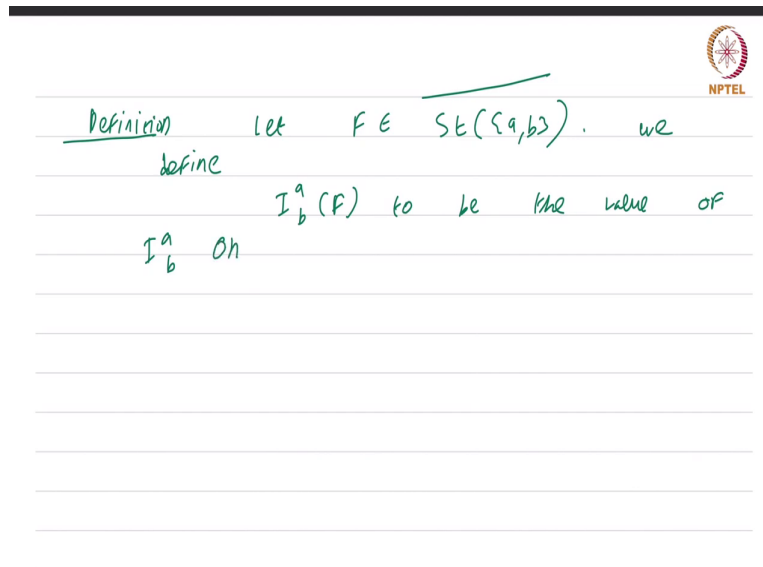 NPTEL
Definition Let F ∈ St({a,b}). we
define
I_b^a (F) to be the value of
I_b^a on